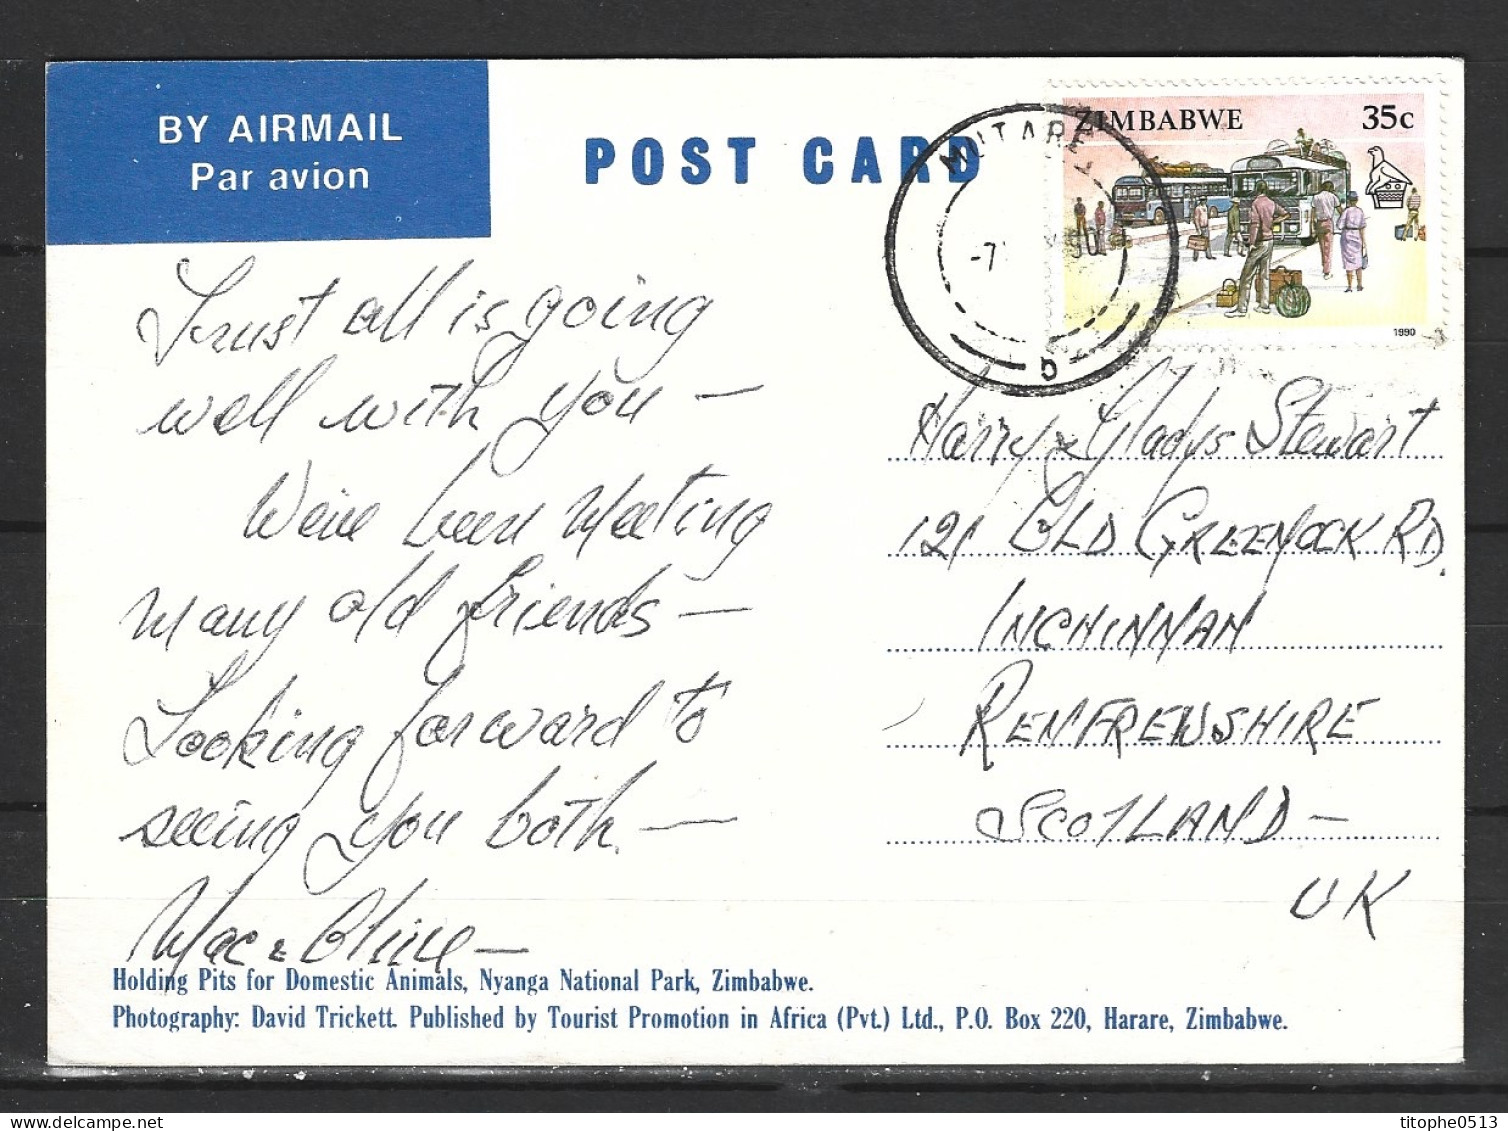 BY AIRMAIL
Par avion
POST CARD
ZIMBABWE 35c
MUTARE
-7
90
b
1990
Trust all is going
well with you —
We've been meeting
many old friends —
Looking forward to
seeing you both —
Mac & Olive —
Harry & Gladys Stewart
121 OLD GREENOCK RD.
INCHINNAN
RENFREWSHIRE
SCOTLAND —
UK
Holding Pits for Domestic Animals, Nyanga National Park, Zimbabwe.
Photography: David Trickett. Published by Tourist Promotion in Africa (Pvt.) Ltd., P.O. Box 220, Harare, Zimbabwe.
titophe0513